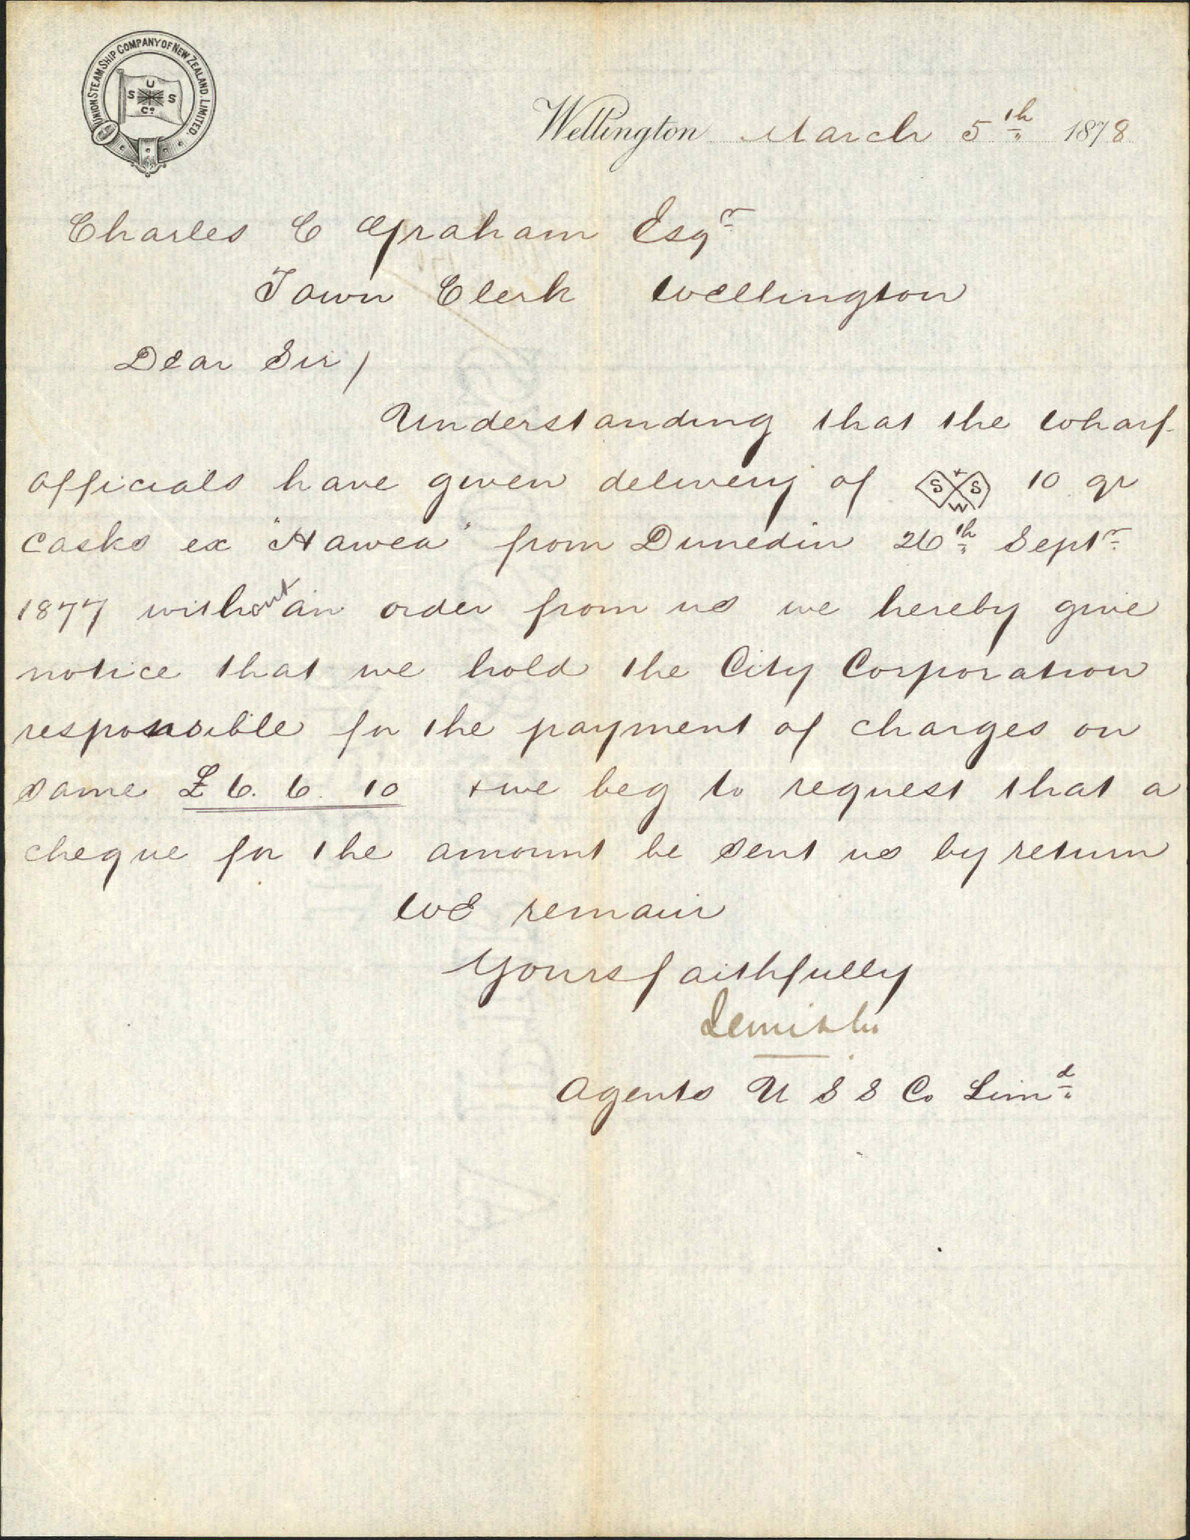 UNION STEAM SHIP COMPANY OF NEW ZEALAND. LIMITED.
U
S S
Co.
Wellington March 5th 1878
Charles C Graham Esqr
Town Clerk Wellington
Dear Sir,
Understanding that the wharf
officials have given delivery of S S W 10 qr
casks ex "Hawea" from Dunedin 26th Septr
1877 without an order from us we hereby give
notice that we hold the City Corporation
responsible for the payment of charges on
same £6. 6. 10 + we beg to request that a
cheque for the amount be sent us by return
We remain
Yours faithfully
Agents U S S Co Limd